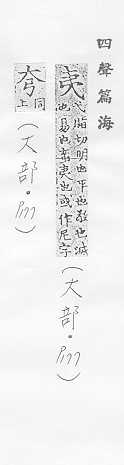 四聲篇海
夷弋脂切明也平也敬也滅
也易也蠻夷也或作𡰥字
（大部·P177）
夸同
上
（大部·P177）